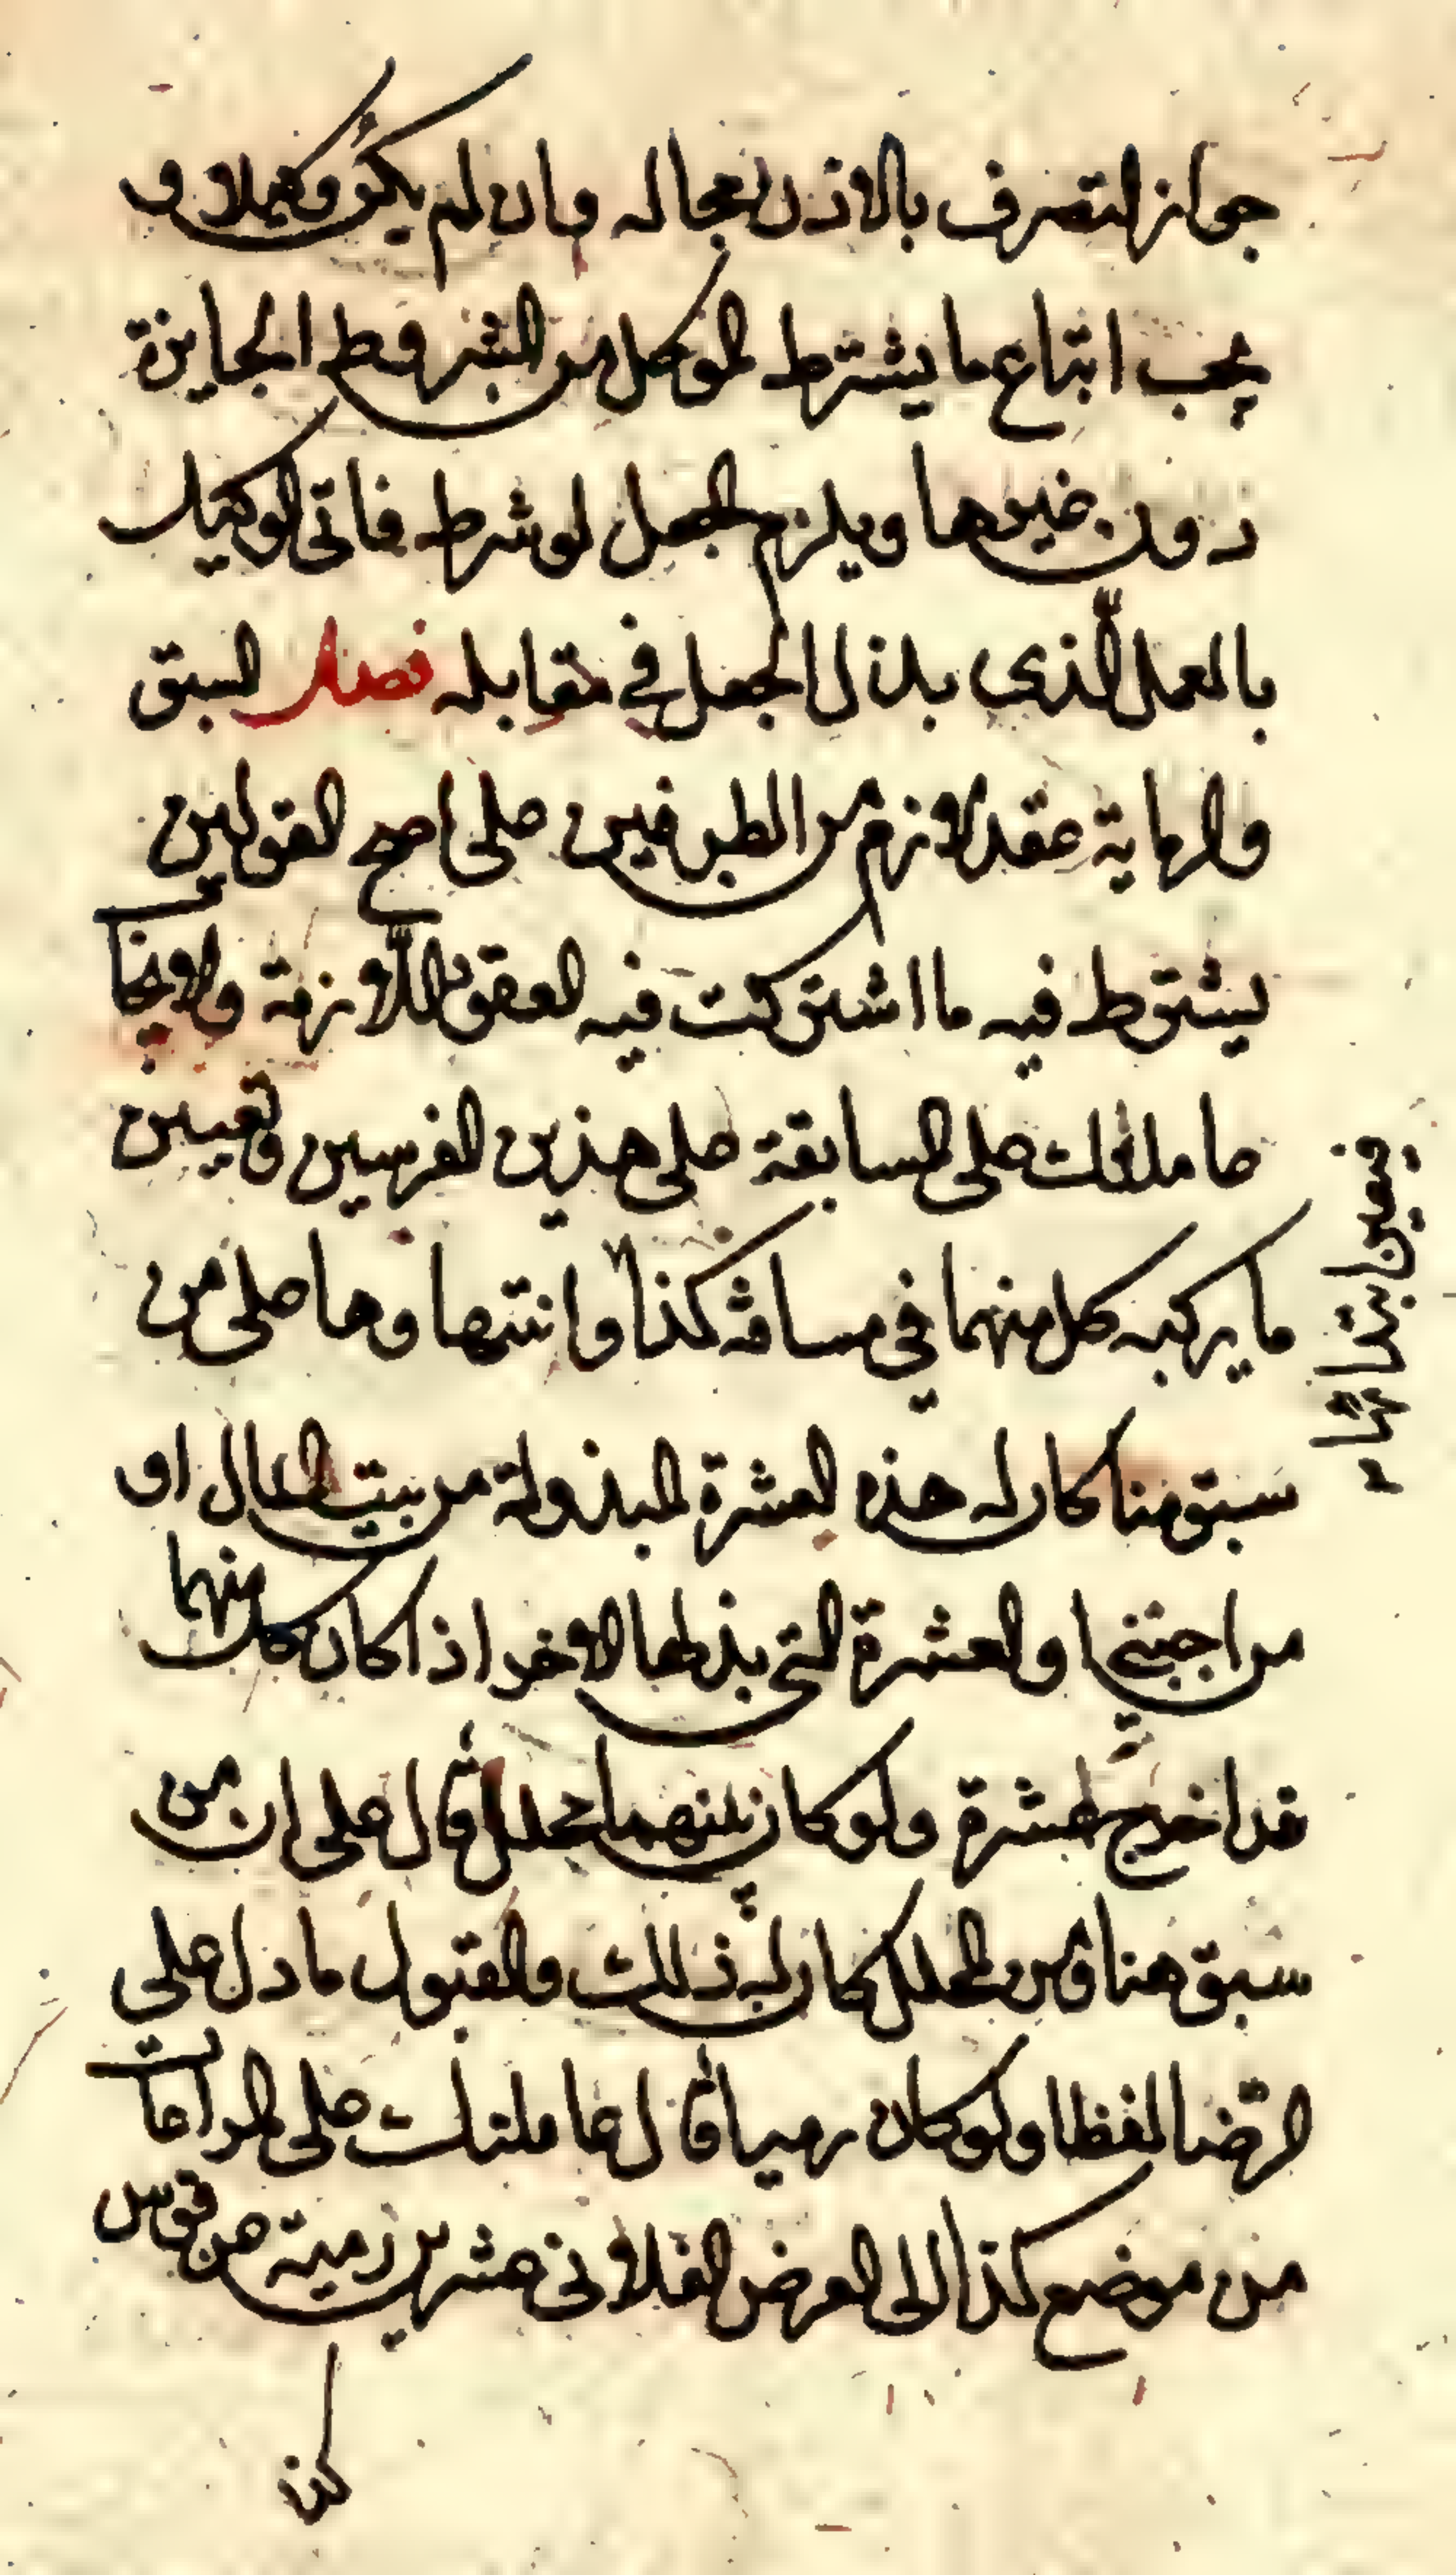 جواز التصرف بالاذن بحاله وان لم يكن وكيلا و
يجب اتباع ما يشترط الموكل من الشروط الجايزة
دون غيرها ويلزم الجعل لو شرط فاتى الوكيل
بالعمل الذى بذل الجعل في مقابله فصل السبق
والرماية عقد لازم من الطرفين على اصح القولين
يشترط فيه ما اشتركت فيه العقود اللازمة والايجاب
عاملتك على المسابقة على هذين الفرسين وتعيين
ما يركبه كل منهما في مسافة كذا وانتهاوها على من
بتعيين ابتدائها
سبق منا كان له هذه العشرة المبذولة من بيت المال او
من اجنبي او العشرة التى بذلها الاخر اذا كان كل منهما
قد اخرج عشرة ولو كان بينهما محلل قال على ان من
سبق منا ومن المحلل كان له ذلك والقبول ما دل على
الرضا لفظا ولو كان رميا قال عاملتك على المراماة
من موضع كذا الى الغرض الفلاني عشرين رمية عن قوس
كذا